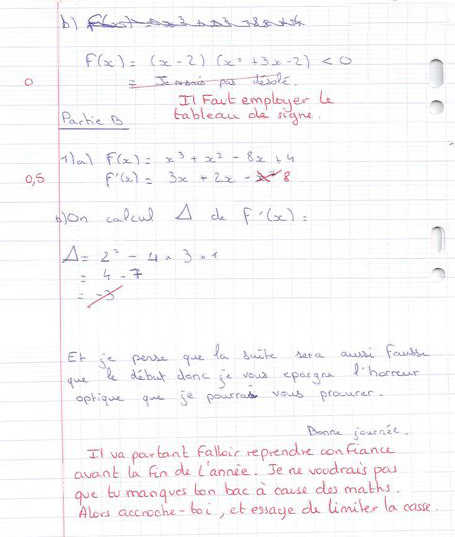 b)
F(x) = (x-2)(x² + 3x - 2) < 0
0
= Je sais pas désolé.
Il faut employer le
tableau de signe.
Partie B
1)a) F(x) = x³ + x² - 8x + 4
0,5
F'(x) = 3x + 2x - 8
b) On calcul Δ de F'(x) :
Δ = 2² - 4 × 3 × 1
= 4 - 7
= -3
Et je pense que la suite sera aussi fausse
que le début donc je vous epargne l'horreur
optique que je pourrais vous procurer.
Bonne journée.
Il va partant falloir reprendre confiance
avant la fin de l'année. Je ne voudrais pas
que tu manques ton bac à cause des maths.
Alors accroche-toi, et essaye de limiter la casse.